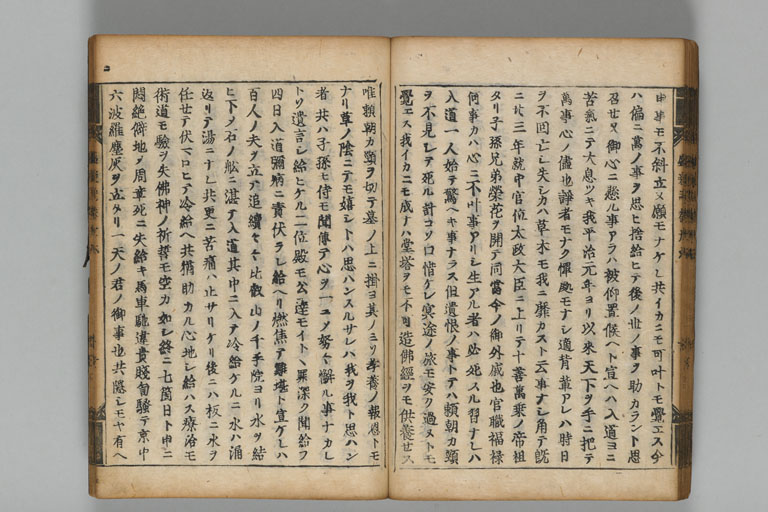 申事モ不斜立メ願モナケレ共イカニモ可叶トモ覺エス今
ハ偏ニ萬ノ事ヲ思ヒ捨給ヒテ後ノ世ノ事ヲ助カラント思
召セ又御心ニ懸ル事アラハ被仰置候ヘト宣ヘハ入道ヨニ
苦氣ニテ大息ツキ我平治元年ヨリ以來天下ヲ手ニ把テ
萬事心ノ儘也諍者モナク憚處モナシ適背輩アレハ時日
ヲ不回亡シ失シカハ草木モ我ニ靡カスト云事ナシ角テ既
ニ廿三年就中官位太政大臣ニ上リテ十善萬乗ノ帝祖
タリ子孫兄弟榮花ヲ開テ同當今ノ御外戚也官職福禄
何事カハ心ニ不叶事アリシ生アル者ハ必死スル習ナレハ
入道一人始テ驚ヘキ事ナラス但遺恨ノ事トテハ頼朝カ頸
ヲ不見シテ死ル計コソ口惜ケレ冥途ノ旅モ安ク過ヌトモ
覺エス我イカニモ成ナハ堂塔ヲモ不造佛經ヲモ供養セス
唯頼朝カ頸ヲ切テ墓ノ上ニ掛ヨ其ノミソ孝養ノ報恩トモ
ナリ草ノ陰ニテモ嬉シトハ思ハンスルサレハ我ヲ我ト思ハン
者共ハ子孫モ侍モ聞傳テ心ヲ一ニメ努々懈ル事ナカレ
トソ遺言シ給ヒケル二位殿モ公達モイトヽ罪深ク聞給フ
四日入道彌病ニ責伏ラレ給ヘリ燃焦テ難堪ト宣ケレハ
百人ノ夫ヲ立テ追續々々比叡山ノ千手院ヨリ水ヲ結
ヒ下メ石ノ舩ニ湛テ入道其中ニ入テ冷給ケルニ水ハ涌
返リテ湯ニナレ共更ニ苦痛ハ止サリケリ後ニハ板ニ水ヲ
任セテ伏マロヒテ冷給ヘ共猶助カル心地シ給ハス療治モ
術道モ驗ヲ失佛神ノ祈誓モ空カ如シ終ニ七箇日ト申ニ
悶絶僻地メ周章死ニ失給キ馬車馳違貴賤匐騷テ京中
六波羅塵灰ヲ立タリ一天ノ君ノ御事也共隱シモヤ有ヘ